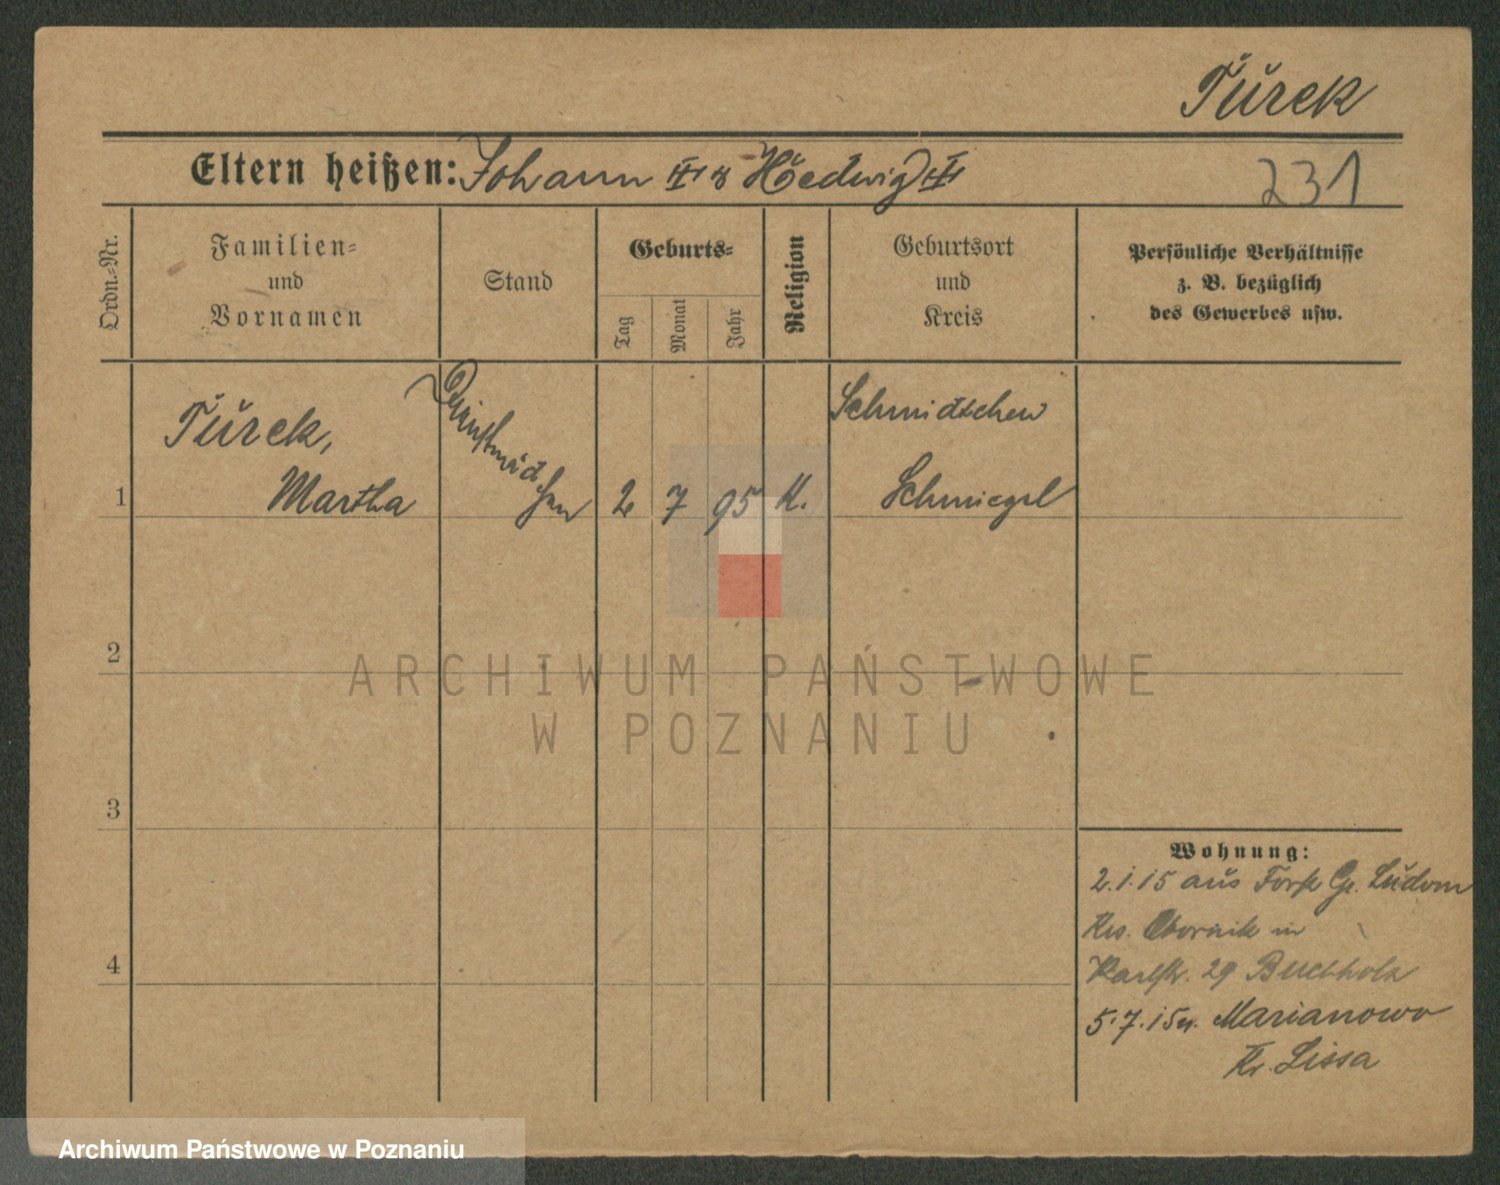 Turek
Eltern heißen: Johann u Hedwig
231
Ordn.-Nr.
Familien-
und
Vornamen
Stand
Geburts-
Tag
Monat
Jahr
Religion
Geburtsort
und
Kreis
Persönliche Verhältnisse
z. B. bezüglich
des Gewerbes usw.
1
Turek,
Martha
Dienstmäd
chen
2 7 95 K.
Schmidtchen
Schmiegel
2
3
4
Wohnung:
2.1.15 aus Forst Gr. Ludom
Krs. Obornik in
Karlstr. 29 Buchholz
5.7.15 n. Marianowo
Kr. Lissa
ARCHIWUM PAŃSTWOWE
W POZNANIU
Archiwum Państwowe w Poznaniu